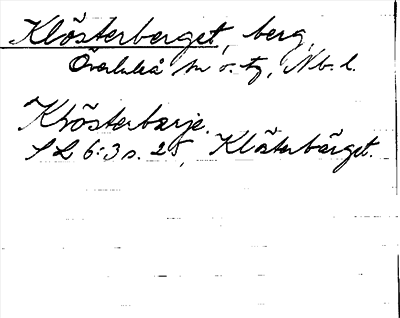 Klösterberget, berg,
Överluleå sn o. tg, Nb. l.
Klösterbærje.
SL 6:3 s. 25, Klösterbärget.